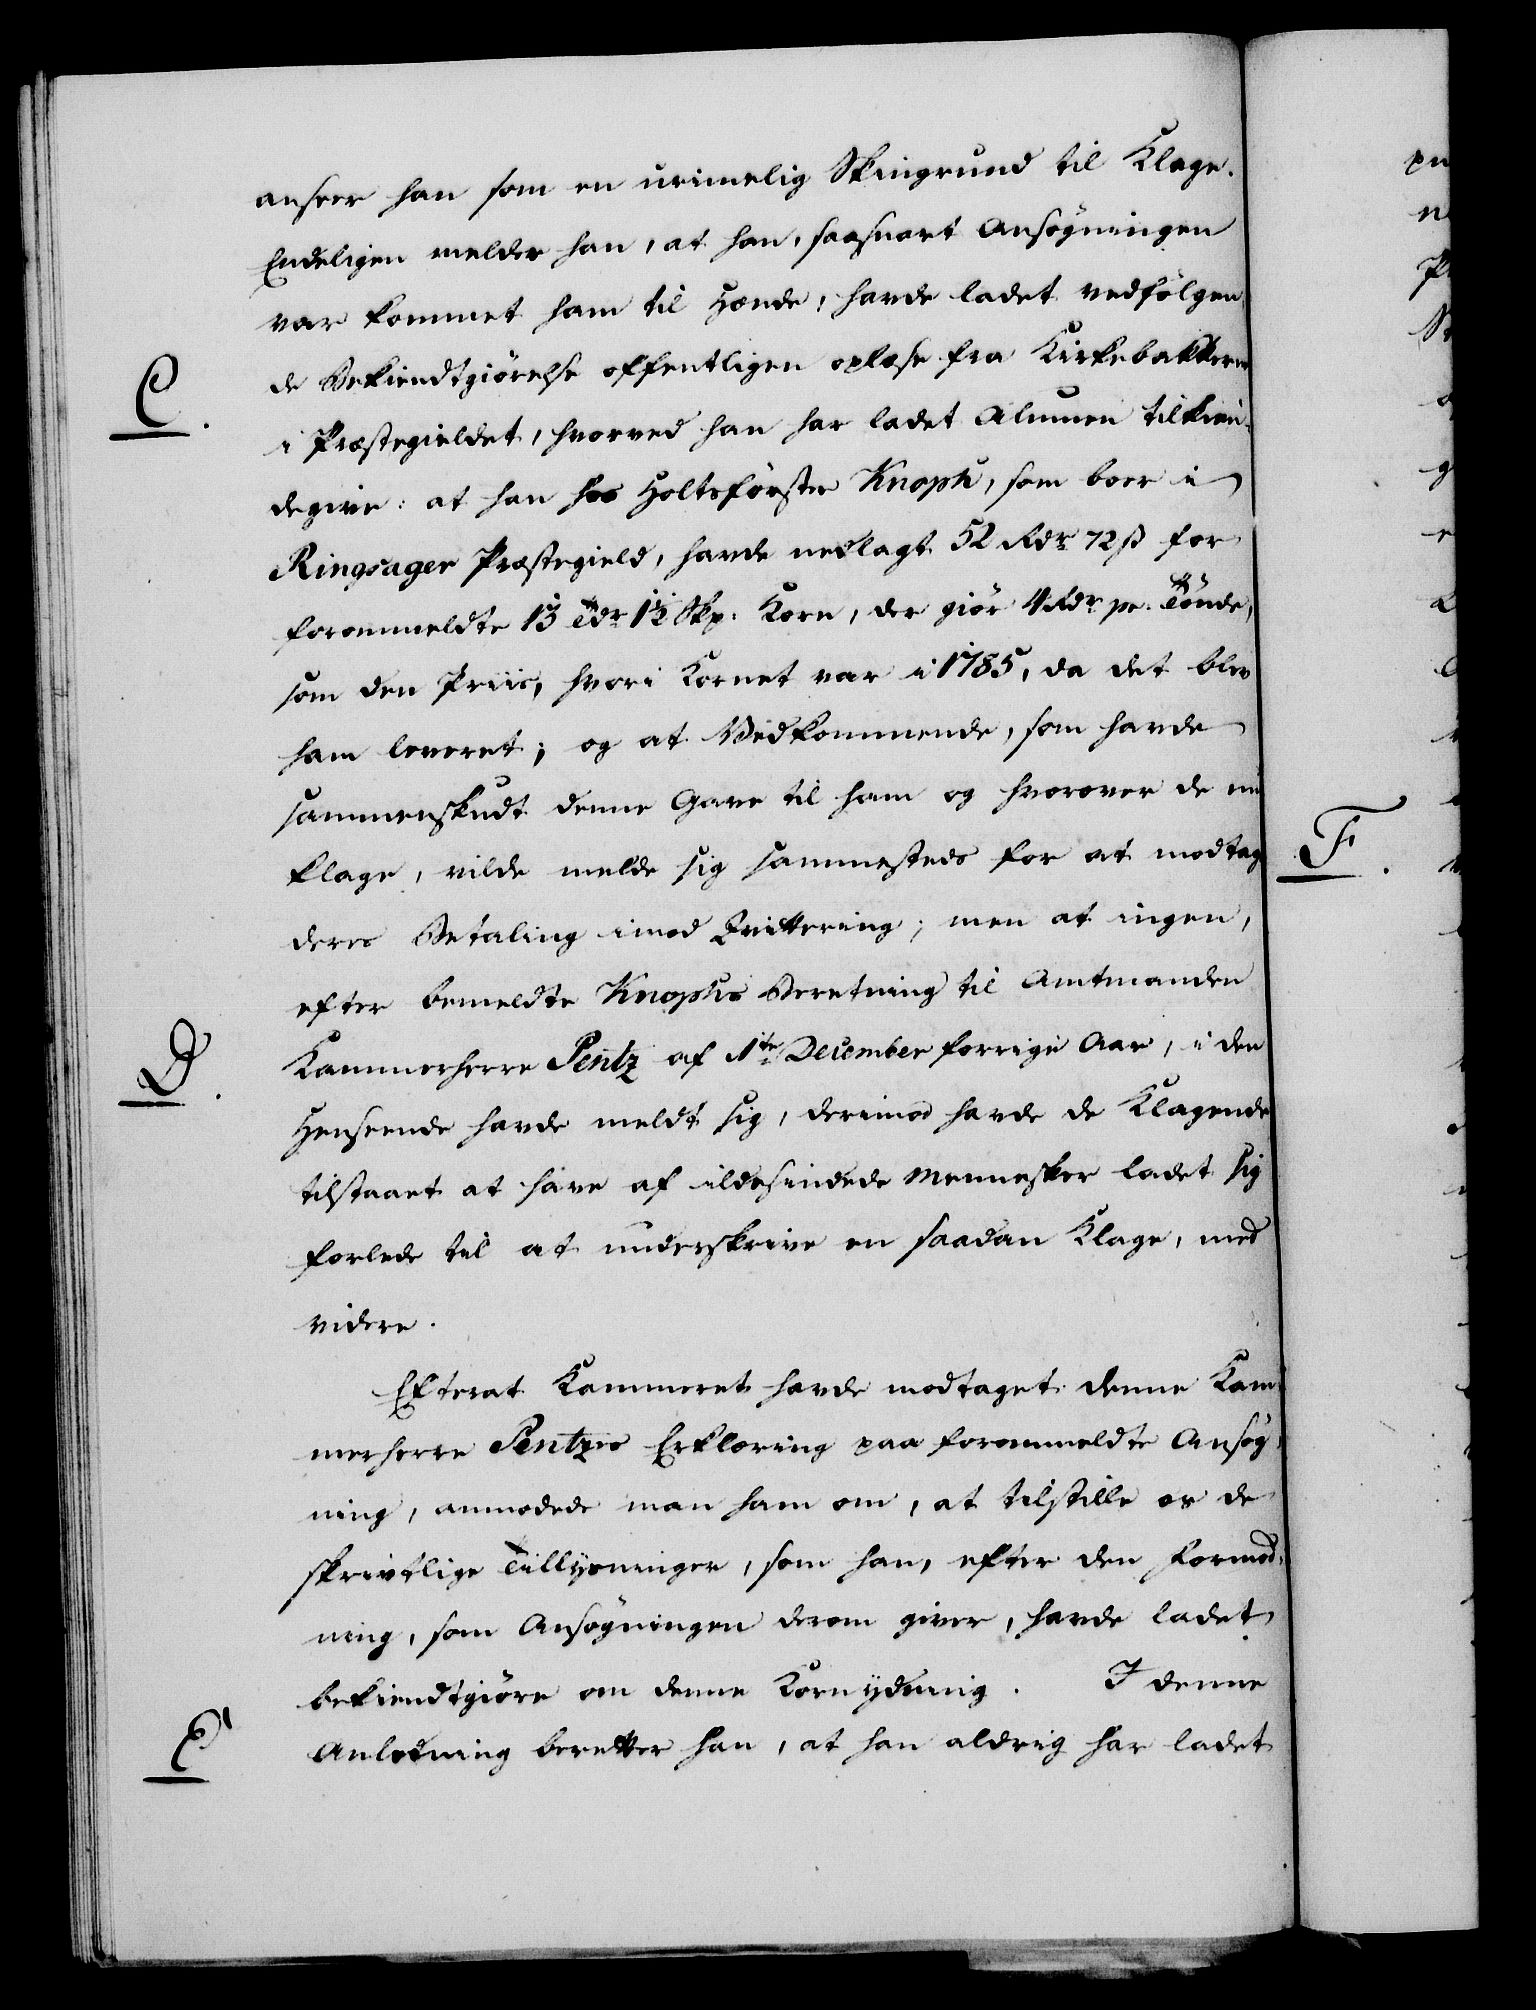 anseer han som en urimelig Skingrund til Klage.
Endeligen melder han, at han, saasnart Ansøgningen
var kommet ham til Hænde, havde ladet vedfølgen-
C.
de Bekiendtgiørelse offentligen oplæse fra Kirkebakkerne
i Præstegieldet, hvorved han har ladet Almuen tilkien-
degive: at han hos Holtsførster Knoph, som boer i
Ringsager Præstegield, havde nedlagt 52 Rdr 72 ß for
forommeldte 13 Tdr 1½ Skp. Korn, der giør 4 Rdr pr. Tönde,
som den Priis, hvori Kornet var i 1785, da det blev
ham leveret; og at Vedkommende, som havde
sammenskudt denne Gave til ham og hvorover de nu
klage, vilde melde sig sammesteds for at modtage
F.
deres Betaling imod Qvittering; men at ingen,
efter bemeldte Knophs Beretning til Amtmanden
Kammerherre Pentz af 1te December forrige Aar, i den
D.
Henseende havde meldt sig, derimod havde de Klagende
tilstaaet at have af ildesindede Mennesker ladet sig
forlede til at underskrive en saadan Klage, med
videre.
Efterat Kammeret havde modtaget denne Kam-
merherre Pentzes Erklæring paa forommeldte Ansøg-
ning, anmodede man ham om, at tilstille os de
skrivtlige Tillysninger, som han, efter den Formod-
ning, som Ansøgningen derom giver, havde ladet
bekiendtgiøre om denne Kornydning. I denne
E
Anledning beretter han, at han aldrig har ladet